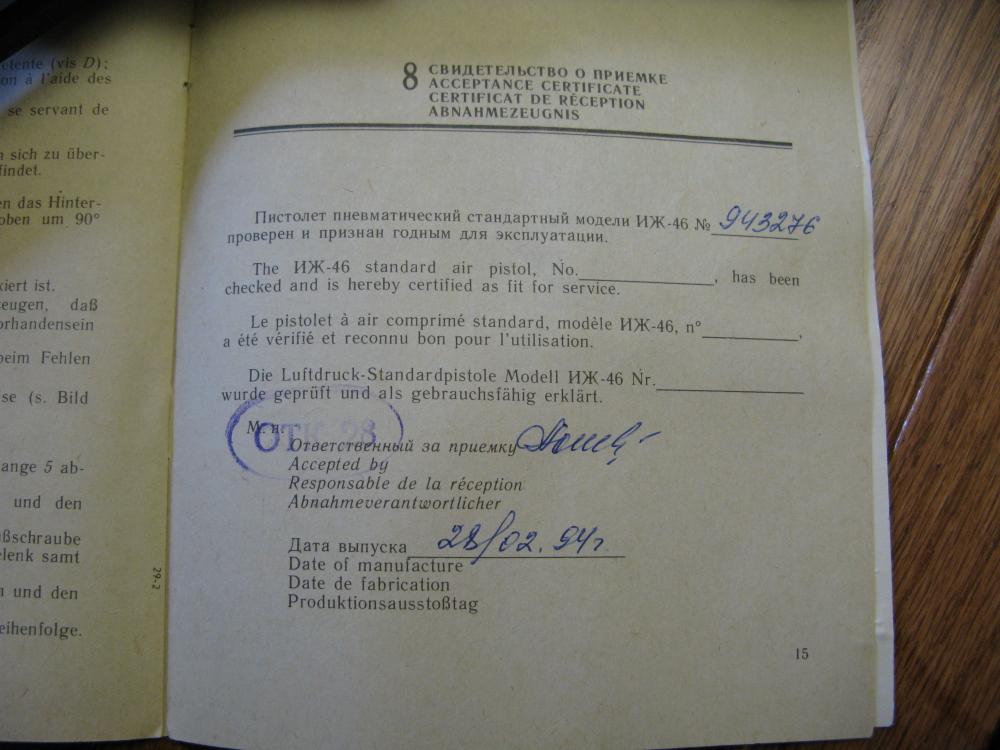 étente (vis D);
on à l'aide des
se servant de
sich zu über-
findet.
en das Hinter-
oben um 90°
kiert ist.
zeugen, daß
orhandensein
beim Fehlen
se (s. Bild
ange 5 ab-
und den
ußschraube
elenk samt
und den
eihenfolge.
29-2
8 СВИДЕТЕЛЬСТВО О ПРИЕМКЕ
ACCEPTANCE CERTIFICATE
CERTIFICAT DE RÉCEPTION
ABNAHMEZEUGNIS
Пистолет пневматический стандартный модели ИЖ-46 № 943276
проверен и признан годным для эксплуатации.
The ИЖ-46 standard air pistol, No. , has been
checked and is hereby certified as fit for service.
Le pistolet à air comprimé standard, modèle ИЖ-46, n° ,
a été vérifié et reconnu bon pour l'utilisation.
Die Luftdruck-Standardpistole Modell ИЖ-46 Nr.
wurde geprüft und als gebrauchsfähig erklärt.
М. п.
ОТК 28
Ответственный за приемку
Accepted by
Responsable de la réception
Abnahmeverantwortlicher
Дата выпуска 28/02.94г.
Date of manufacture
Date de fabrication
Produktionsausstoßtag
15